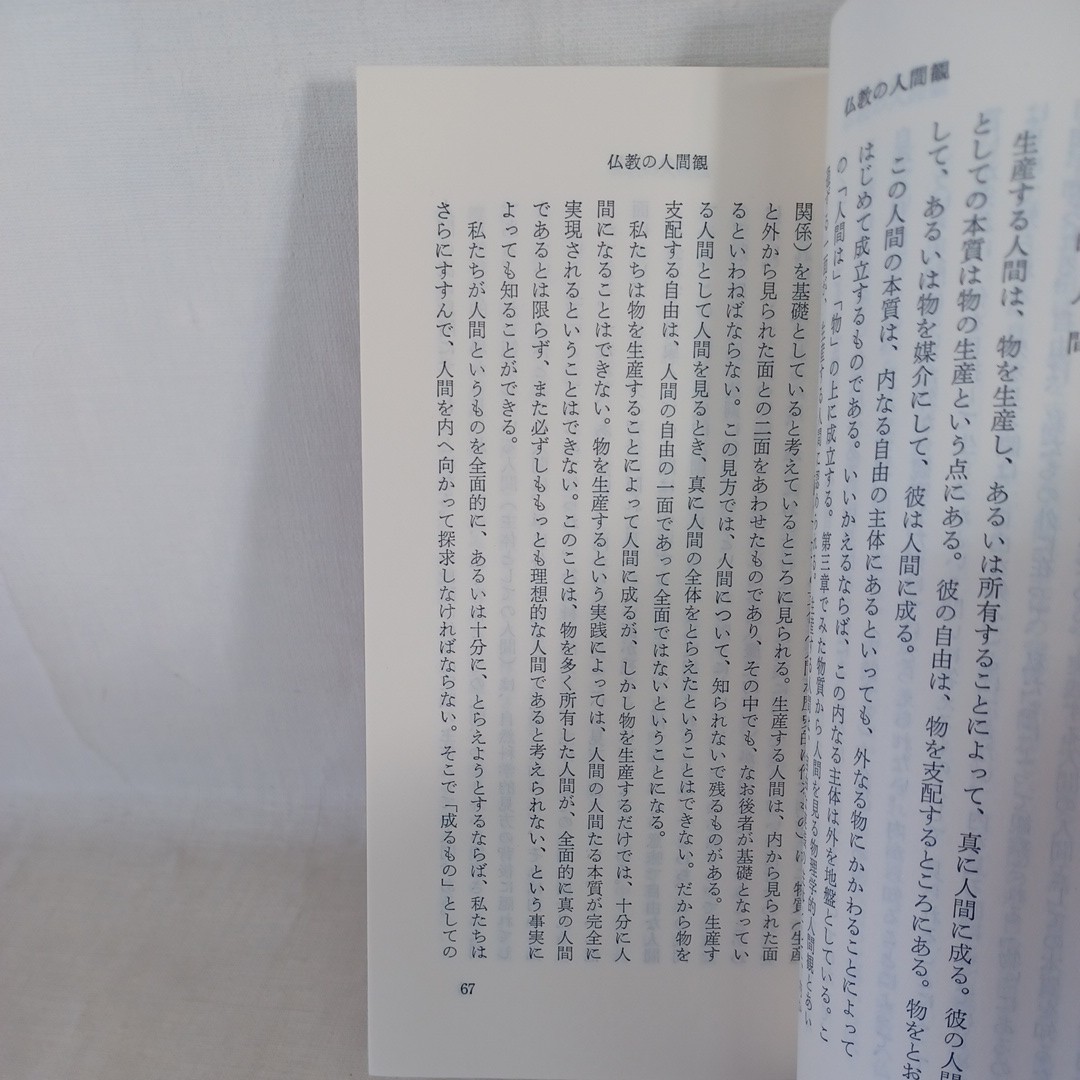 仏教の人間観
生産する人間は、物を生産し、あるいは所有することによって、真に人間に成る。彼の人間
としての本質は物の生産という点にある。彼の自由は、物を支配するところにある。物をとお
して、あるいは物を媒介にして、彼は人間に成る。
この人間の本質は、内なる自由の主体にあるといっても、外なる物にかかわることによって
はじめて成立するものである。いいかえるならば、この内なる主体は外を地盤としている。こ
の「人間は」「物」の上に成立する。第三章でみた物質から人間を見る物理学的人間観とあい
仏教の人間観
関係）を基礎としていると考えているところに見られる。生産する人間は、内から見られた面
と外から見られた面との二面をあわせたものであり、その中でも、なお後者が基礎となってい
るといわねばならない。この見方では、人間について、知られないで残るものがある。生産す
る人間として人間を見るとき、真に人間の全体をとらえたということはできない。だから物を
支配する自由は、人間の自由の一面であって全面ではないということになる。
私たちは物を生産することによって人間に成るが、しかし物を生産するだけでは、十分に人
間になることはできない。物を生産するという実践によっては、人間の人間たる本質が完全に
実現されるということはできない。このことは、物を多く所有した人間が、全面的に真の人間
であるとは限らず、また必ずしももっとも理想的な人間であると考えられない、という事実に
よっても知ることができる。
私たちが人間というものを全面的に、あるいは十分に、とらえようとするならば、私たちは
さらにすすんで、人間を内へ向かって探求しなければならない。そこで「成るもの」としての
67